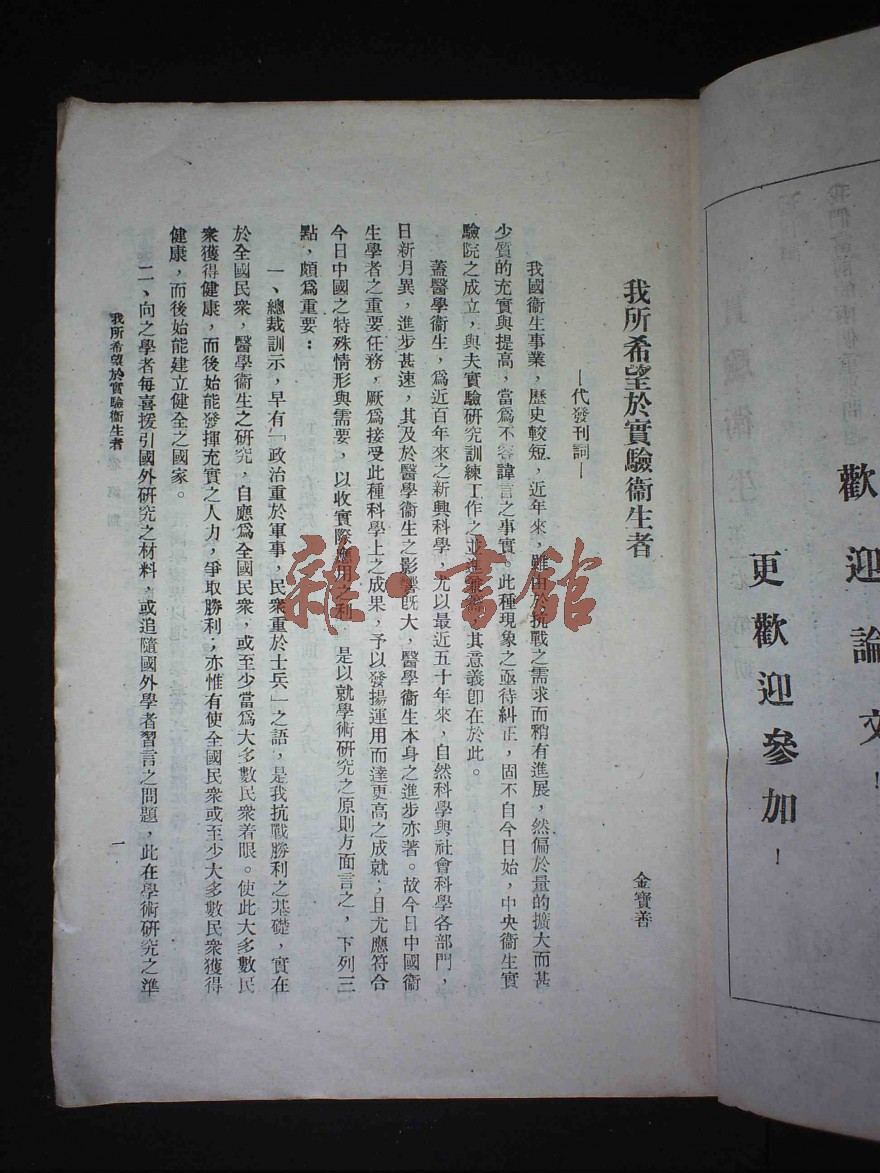 歡迎論文！
更歡迎參加！
我所希望於實驗衞生者
—代發刊詞—
金寶善
我國衞生事業，歷史較短，近年來，雖由於抗戰之需求而稍有進展，然偏於量的擴大而甚
少質的充實與提高，當爲不容諱言之事實。此種現象之亟待糾正，固不自今日始，中央衞生實
驗院之成立，與夫實驗研究訓練工作之並進兼籌，其意義卽在於此。
蓋醫學衞生，爲近百年來之新興科學，尤以最近五十年來，自然科學與社會科學各部門，
日新月異，進步甚速，其及於醫學衞生之影響旣大，醫學衞生本身之進步亦著。故今日中國衞
生學者之重要任務，厥爲接受此種科學上之成果，予以發揚運用而達更高之成就；且尤應符合
今日中國之特殊情形與需要，以收實際應用之利 是以就學術研究之原則方面言之，下列三
點，頗爲重要：
一、總裁訓示，早有「政治重於軍事，民衆重於士兵」之語，是我抗戰勝利之基礎，實在
於全國民衆，醫學衞生之研究，自應爲全國民衆，或至少當爲大多數民衆着眼。使此大多數民
衆獲得健康，而後始能發揮充實之人力，爭取勝利；亦惟有使全國民衆或至少大多數民衆獲得
健康，而後始能建立健全之國家。
二、向之學者每喜援引國外研究之材料，或追隨國外學者習言之問題，此在學術研究之準
我所希望於實驗衞生者
一
雜·書館